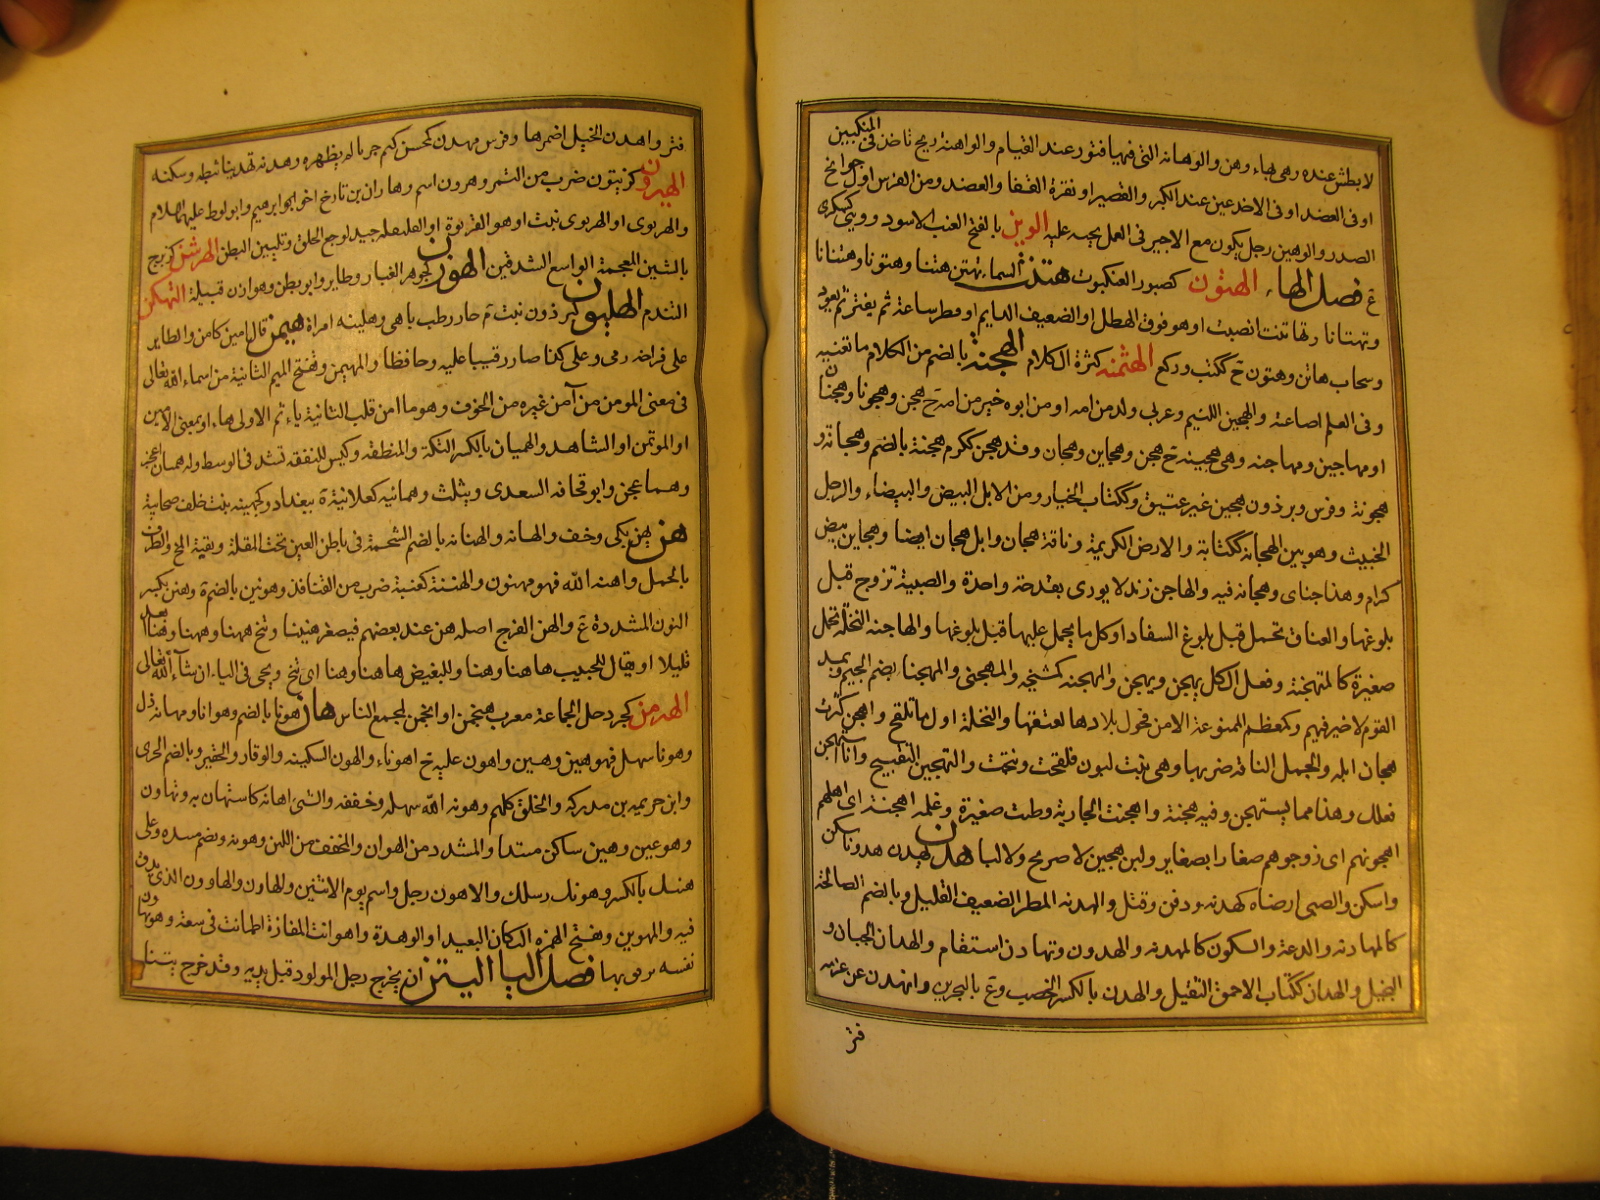 لا بطش عنده وهى بهاء وهن والوهانه التى فيها فتور عند القيام والواهنة ريح تاخذ فى المنكبين
او فى العضد او فى الاخدعين عند الكبر والقصير او نقرة القفا والعضد ومن الفرس اول جوانح
الصدر والوهين رجل يكون مع الاجير فى العمل يحثه عليه الوين بالفتح العنب الاسود وويني كسكرى
ع فصل الهاء الهتون كصبور العنكبوت هتنت السماء تهتن هتنا وهتونا وهتنانا
وتهتانا وتهاتنت انصبت او هو فوق الهطل او الضعيف الدايم او مطر ساعة ثم يفتر ثم يعود
وسحاب هاتن وهتون ج ككتب وركع الهثمنه كثرة الكلام الهجنة بالضم من الكلام ما تعيبه
وفى العلم اضاعته والهجين اللئيم وعربى ولد من امه او من ابوه خير من امه ج هجن وهجنا وهجنان
او مهاجين ومهاجنه وهى هجينه ج هجن وهجاين وهجان وقد هجن ككرم هجنة بالضم وهجانة و
هجونة وفرس وبرذون هجين غير عتيق وككتاب الخيار ومن الابل البيض والبيضاء والرجل
الخبيث وهو بين الهجانة ككتابة والارض الكريمة وناقة هجان وابل هجان ايضا وهجاين بيض
كرام وهذا جناى وهجانه فيه والهاجن زند لا يورى بقدحة واحدة والصبية تزوج قبل
بلوغها والعناق تحمل قبل بلوغ السفاد او كل ما يحمل عليها قبل بلوغها والهاجنه النخلة تحمل
صغيرة كالمتهجنة وفعل الكل يهجن ويهجن والمهجنه كمشيخه والمهجنى والمهجنا بضم الجيم ويمد
القوم لا خير فيهم وكمعظم الممنوعة الا من فحول بلادها لعتقها والنخلة اول ما تلقح واهجن كثرت
هجان ابله والجمل الناقة ضربها وهى بنت لبون فلقحت ونتجت والتهجين التقبيح وانا استهجن
فعلك وهذا مما يستهجن وفيه هجنة واهجنت الجارية وطئت صغيرة وغلمه اهجنة اى اهلهم
اهجنوهم اى زوجوهم صغارا بصغاير ولبن هجين لا صريح ولا لبا هدن يهدن هدونا سكن
واسكن والصبى ارضاه كهدنه ودفن وقتل والهدنه المطر الضعيف القليل وبالضم المصالحة
كالمهادنه والدعة والسكون كالمهدنه والهدون وتهادن استقام والهدان الجبان و
البخيل والهدان ككتاب الاحمق الثقيل والهدن بالكسر الخصب وع بالبحرين وانهدن عن عزمه
فتر
فتر واهدن الخيل اضمرها وفرس مهدن كمحسن كتم جريا لم يظهره وهدنه تهدينا ثبطه وسكنه
الهيرون كزيتون ضرب من التمر وهرون اسم وهاران بن تارخ اخو ابراهيم وابو لوط عليهما السلام
والهرنوى او الهرنوى نبت او هو القرنوة او الفلفله جيد لوجع الحلق وتليين البطن الهرشن كزبرج
بالشين المعجمة الواسع الشدقين الهوزن كجوهر الغبار وطاير وابو بطن وهوازن قبيلة التهكن
التندم الهليون كبرذون نبت م حار رطب باهى وهلينه امرأة هيمن قال امين كامن والطاير
على فراخه رمى وعلى كذا صار رقيبا عليه وحافظا والمهيمن وتفتح الميم الثانية من اسماء الله تعالى
فى معنى المومن من آمن غيره من الخوف وهو مأأمن قلبت الثانية ياء ثم الاولى هاء او بمعنى الامين
او الموتمن او الشاهد والهميان بالكسر التكة والمنطقه وكيس للنفقه تشد فى الوسط وله هميان اعجر
وهما عجن وابو قحافة السعدى ويثلث وهمانيه كعلانية ة ببغداد وكجهينه بنت خلف صحابية
هن يهن بكى وحف والهانه والهنانه بالضم الشحمة فى باطن العين تحت المقلة وبقية المخ والطرق
بالجمل واهنه الله فهو مهنون والهننة كعنبة ضرب من القنافذ وهونين بالضم ة وهنن بكسر
النون المشددة ع والهن الفرج اصله هن عند بعضهم فيصغر هنينا وتنح ههنا وههنا وهنا ابعد
قليلا او يقال للحبيب هاهنا وهنا وللبغيض هاهنا وهنا اى تنح ويجى فى الياء ان شاء الله تعالى
الهنزمن كجردحل الجماعة معرب هنجمن او انجمن لمجمع الناس هان هونا بالضم وهوانا ومهانة ذل
وهونا سهل فهو هين وهين واهون عليه ج اهوناء والهون السكينه والوقار والحقير وبالضم الخزى
وابن خزيمه بن مدركه والخلق كلهم وهونه الله سهله وخففه والشى اهانه كاستهان به وتهاون
وهو عين وهين ساكن متئد او المشدد من الهوان والمخفف من اللين وهونه وبضم مسده وعلى
هنتك بالكسر وهونك رسلك والاهون رجل واسم يوم الاثنين والهاون والهاوون الذى يدق
فيه والمهوين وبفتح الهمزة المكان البعيد او الوهدة واهوانت المفازة اطمانت فى سعة وهونها
نفسه مر فو بها فصل اليا اليتن ان يخرج رجل المولود قبل يديه وقد خرج يتنا